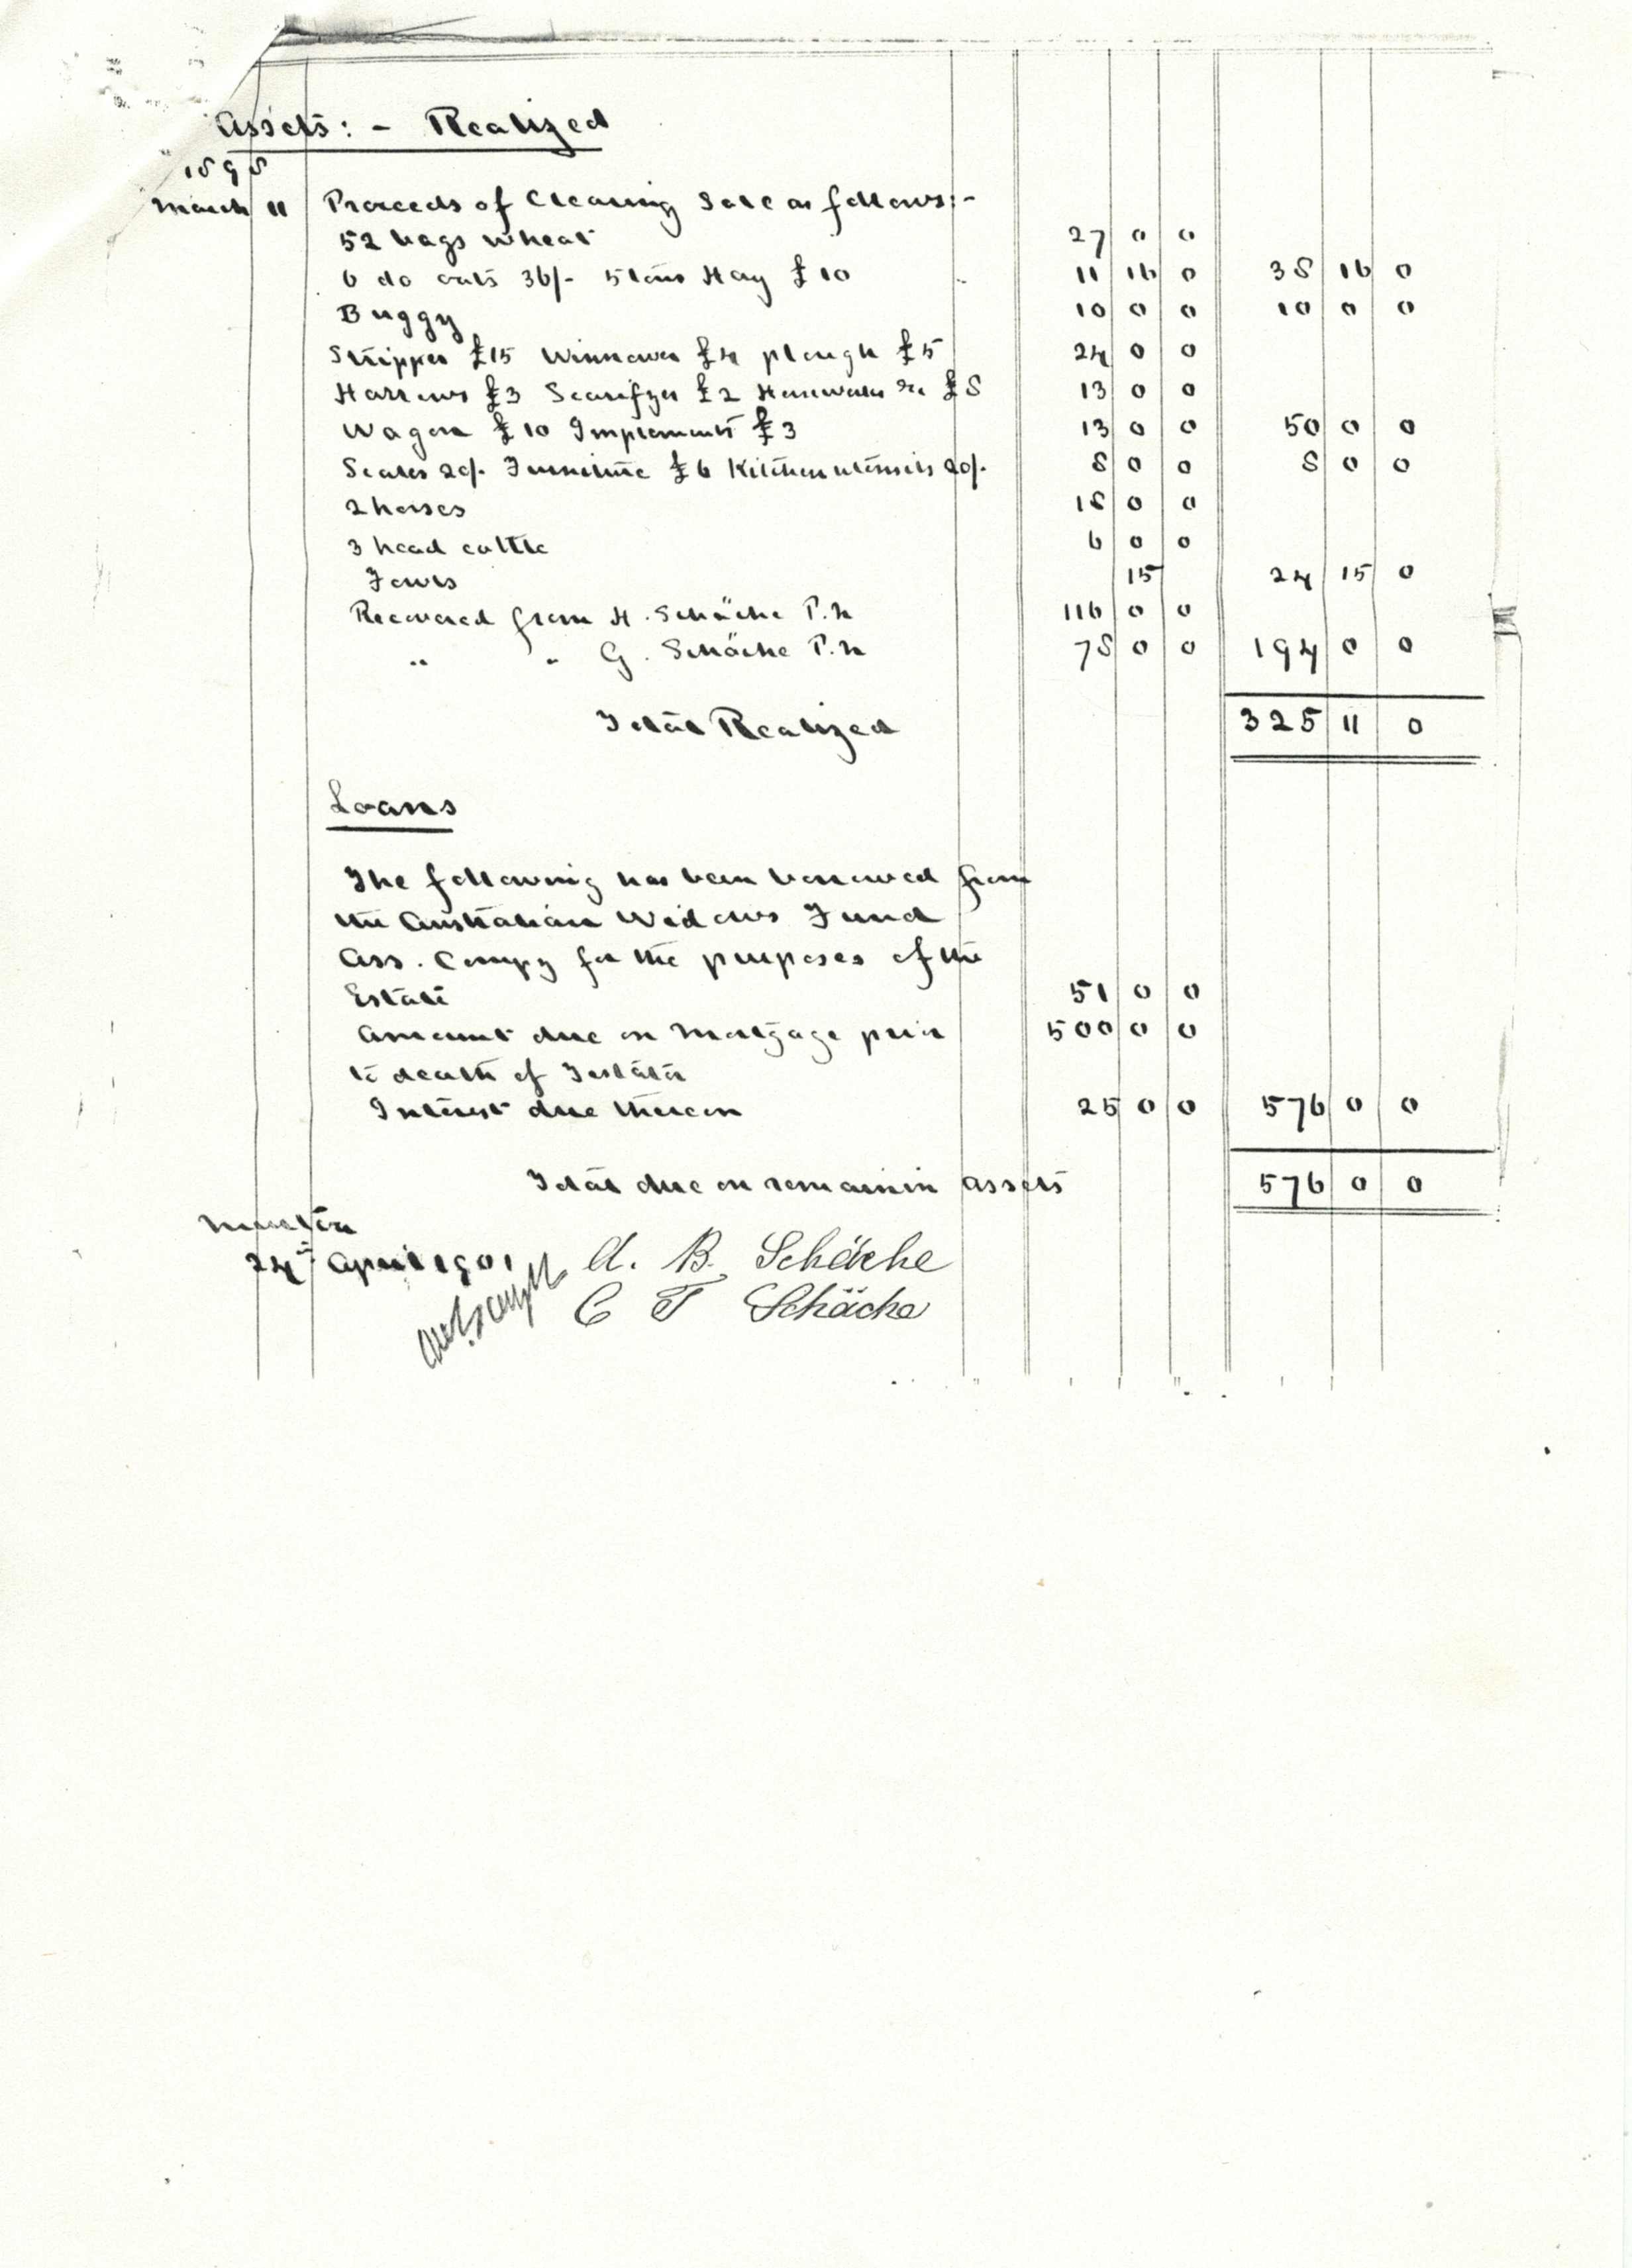 Assets: - Realized
1898
March 11 Proceeds of Clearing Sale as follows:-
52 bags wheat 27 0 0
6 do oats 36/- 5 tons Hay £10 11 16 0 38 16 0
Buggy 10 0 0 10 0 0
Stripper £15 Winnower £4 plough £5 24 0 0
Harrows £3 Scarifyer £2 &c £8 13 0 0
Wagon £10 Implements £3 13 0 0 50 0 0
Scales 20/- Furniture £6 Kitchen utensils 20/- 8 0 0 8 0 0
2 horses 18 0 0
3 head cattle 6 0 0
Fowls 15 24 15 0
Recovered from H. Schäche P.N 116 0 0
" " G. Schäche P.N 78 0 0 194 0 0
Total Realized 325 11 0
Loans
The following has been borrowed from
the Australian Widows Fund
Ass. Compy for the purposes of the
Estate 51 0 0
Amount due on Mortgage prior 500 0 0
to death of Testator
Interest due thereon 25 0 0 576 0 0
Total due on remainin assets 576 0 0
24th April 1901 A. B. Schäche
C T Schäche